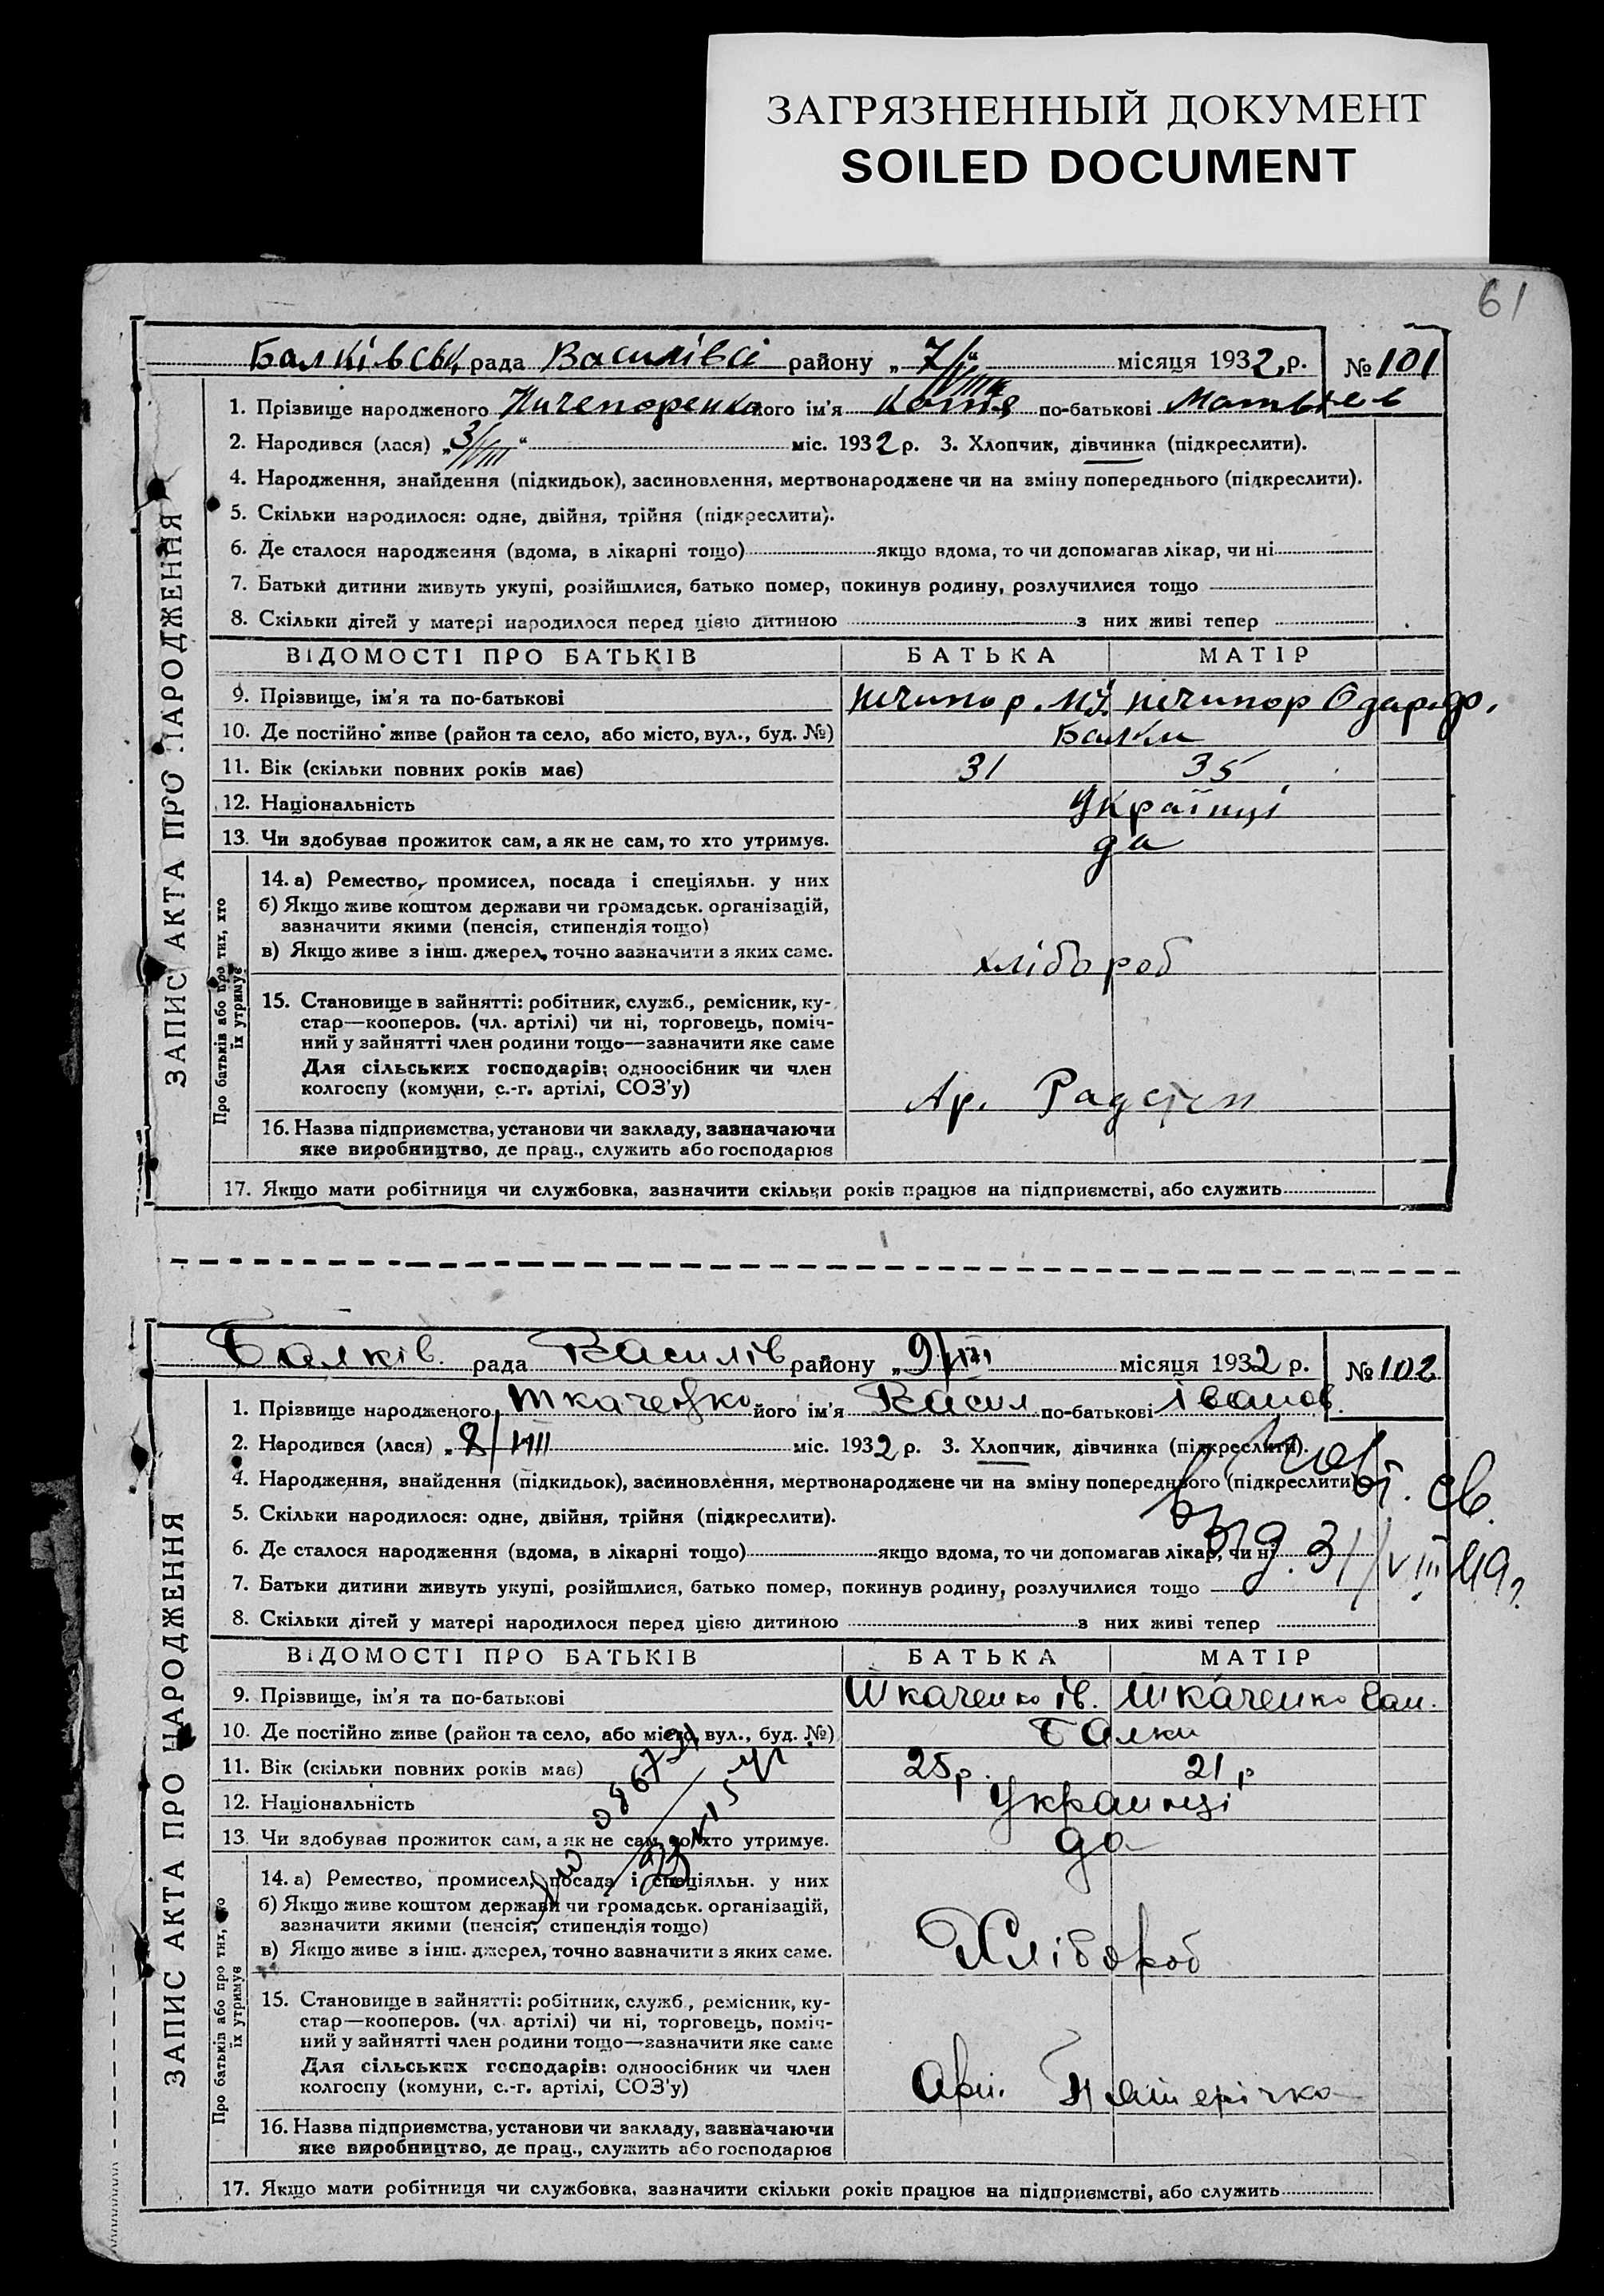 ЗАГРЯЗНЕННЫЙ ДОКУМЕНТ
SOILED DOCUMENT
61
Балківськ. рада Василівсі району „7/VIII“ місяця 1932 р. № 101
1. Прізвище народженого Ничепоренко його ім'я Катя по-батькові Матвіев
2. Народився (лася) „3/VIII“ міс. 1932 р. 3. Хлопчик, дівчинка (підкреслити).
4. Народження, знайдення (підкидьок), засиновлення, мертвонароджене чи на зміну попереднього (підкреслити).
5. Скільки народилося: одне, двійня, трійня (підкреслити).
6. Де сталося народження (вдома, в лікарні тощо) якщо вдома, то чи допомагав лікар, чи ні
7. Батьки дитини живуть укупі, розійшлися, батько помер, покинув родину, розлучилися тощо
8. Скільки дітей у матері народилося перед цією дитиною з них живі тепер
ВІДОМОСТІ ПРО БАТЬКІВ БАТЬКА МАТІР
9. Прізвище, ім'я та по-батькові Ничипор. М. Ничипор Одар.
10. Де постійно живе (район та село, або місто, вул., буд. №) Балки
11. Вік (скільки повних років має) 31 35
12. Національність Українці
13. Чи здобуває прожиток сам, а як не сам, то хто утримує. да
14. а) Ремество, промисел, посада і спеціяльн. у них
б) Якщо живе коштом держави чи громадськ. організацій,
зазначити якими (пенсія, стипендія тощо)
в) Якщо живе з інш. джерел, точно зазначити з яких саме. хлібороб
15. Становище в зайнятті: робітник, служб., ремісник, ку-
стар—кооперов. (чл. артілі) чи ні, торговець, поміч-
ний у зайнятті член родини тощо—зазначити яке саме
Для сільських господарів: одноосібник чи член
колгоспу (комуни, с.-г. артілі, СОЗ'у) Ар. Радстеп
16. Назва підприємства, установи чи закладу, зазначаючи
яке виробництво, де прац., служить або господарює
17. Якщо мати робітниця чи службовка, зазначити скільки років працює на підприємстві, або служить
ЗАПИС АКТА ПРО НАРОДЖЕННЯ
Про батьків або про тих, хто
їх утримує
Балків. рада Василів району „9/VIII місяця 1932 р. № 102
1. Прізвище народженого Ткаченко його ім'я Васил по-батькові Іванов.
2. Народився (лася) „8/VIII міс. 1932 р. 3. Хлопчик, дівчинка (підкреслити).
4. Народження, знайдення (підкидьок), засиновлення, мертвонароджене чи на зміну попереднього (підкреслити).
5. Скільки народилося: одне, двійня, трійня (підкреслити).
6. Де сталося народження (вдома, в лікарні тощо) якщо вдома, то чи допомагав лікар, чи ні
7. Батьки дитини живуть укупі, розійшлися, батько помер, покинув родину, розлучилися тощо
8. Скільки дітей у матері народилося перед цією дитиною з них живі тепер
св.
31/VIII 49 г.
ВІДОМОСТІ ПРО БАТЬКІВ БАТЬКА МАТІР
9. Прізвище, ім'я та по-батькові Ткаченко Ів. Ткаченко
10. Де постійно живе (район та село, або місто, вул., буд. №) Балки
11. Вік (скільки повних років має) 25 р. 21 р
12. Національність Украинці
13. Чи здобуває прожиток сам, а як не сам, то хто утримує. да
14. а) Ремество, промисел, посада і спеціяльн. у них
б) Якщо живе коштом держави чи громадськ. організацій,
зазначити якими (пенсія, стипендія тощо)
в) Якщо живе з інш. джерел, точно зазначити з яких саме. Хлібороб
15. Становище в зайнятті: робітник, служб., ремісник, ку-
стар—кооперов. (чл. артілі) чи ні, торговець, поміч-
ний у зайнятті член родини тощо—зазначити яке саме
Для сільських господарів: одноосібник чи член
колгоспу (комуни, с.-г. артілі, СОЗ'у) Арт. Пятерічка
16. Назва підприємства, установи чи закладу, зазначаючи
яке виробництво, де прац., служить або господарює
17. Якщо мати робітниця чи службовка, зазначити скільки років працює на підприємстві, або служить
ЗАПИС АКТА ПРО НАРОДЖЕННЯ
Про батьків або про тих, хто
їх утримує